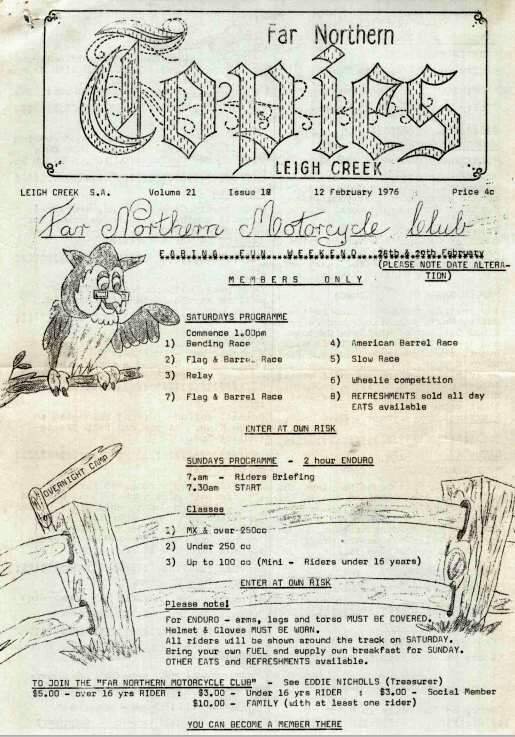 Far Northern
Topics
LEIGH CREEK
LEIGH CREEK S.A. Volume 21 Issue 18 12 February 1976 Price 4c
Far Northern Motorcycle Club
EARING FUN WEEKEND 28th & 29th February
(PLEASE NOTE DATE ALTERA-
TION)
MEMBERS ONLY
SATURDAYS PROGRAMME
Commence 1.00pm
1) Bending Race 4) American Barrel Race
2) Flag & Barrel Race 5) Slow Race
3) Relay 6) Wheelie competition
7) Flag & Barrel Race 8) REFRESHMENTS sold all day
EATS available
ENTER AT OWN RISK
OVERNIGHT CAMP
SUNDAYS PROGRAMME - 2 hour ENDURO
7.am - Riders Briefing
7.30am START
Classes
1) MX & over 250cc
2) Under 250 cc
3) Up to 100 cc (Mini - Riders under 16 years)
ENTER AT OWN RISK
Please note!
For ENDURO - arms, legs and torso MUST BE COVERED.
Helmet & Gloves MUST BE WORN.
All riders will be shown around the track on SATURDAY.
Bring your own FUEL and supply own breakfast for SUNDAY.
OTHER EATS and REFRESHMENTS available.
TO JOIN THE "FAR NORTHERN MOTORCYCLE CLUB" - See EDDIE NICHOLLS (Treasurer)
$5.00 - over 16 yrs RIDER : $3.00 - Under 16 yrs RIDER : $3.00 - Social Member
$10.00 - FAMILY (with at least one rider)
YOU CAN BECOME A MEMBER THERE